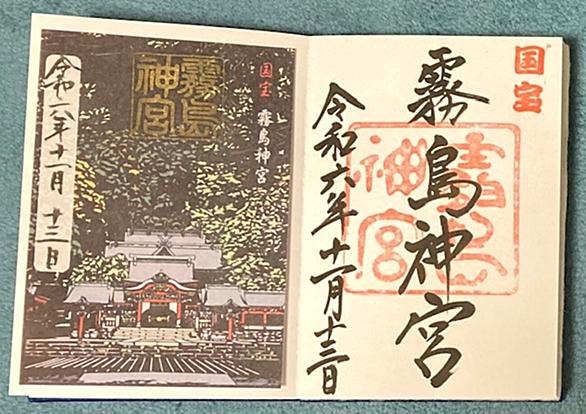 国宝
霧島神宮
霧島
神宮
令和六年十一月十三日
国宝 霧島神宮
霧島
神宮
令和六年十一月 十三日